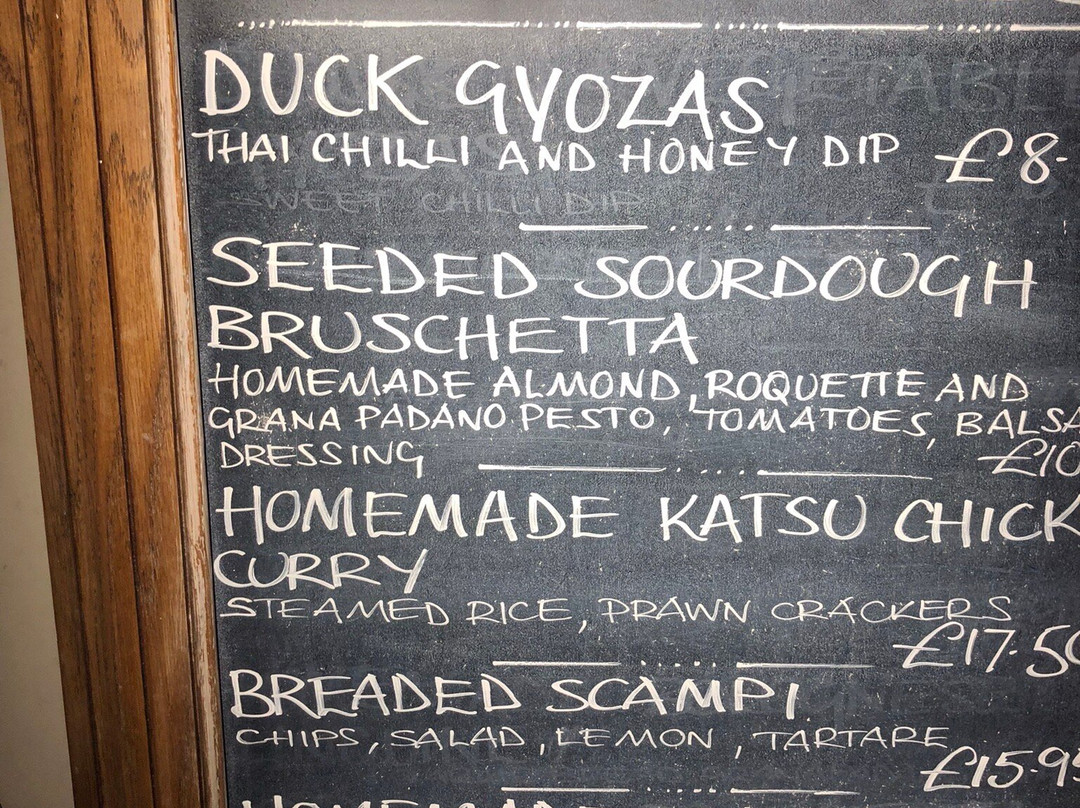 DUCK GYOZAS
THAI CHILLI AND HONEY DIP £8.
SWEET CHILLI DIP £
SEEDED SOURDOUGH
BRUSCHETTA
HOMEMADE ALMOND, ROQUETTE AND
GRANA PADANO PESTO, TOMATOES, BALSA
DRESSING £10
HOMEMADE KATSU CHICK
CURRY
STEAMED RICE, PRAWN CRACKERS
£17.50
BREADED SCAMPI
CHIPS, SALAD, LEMON, TARTARE
£15.95